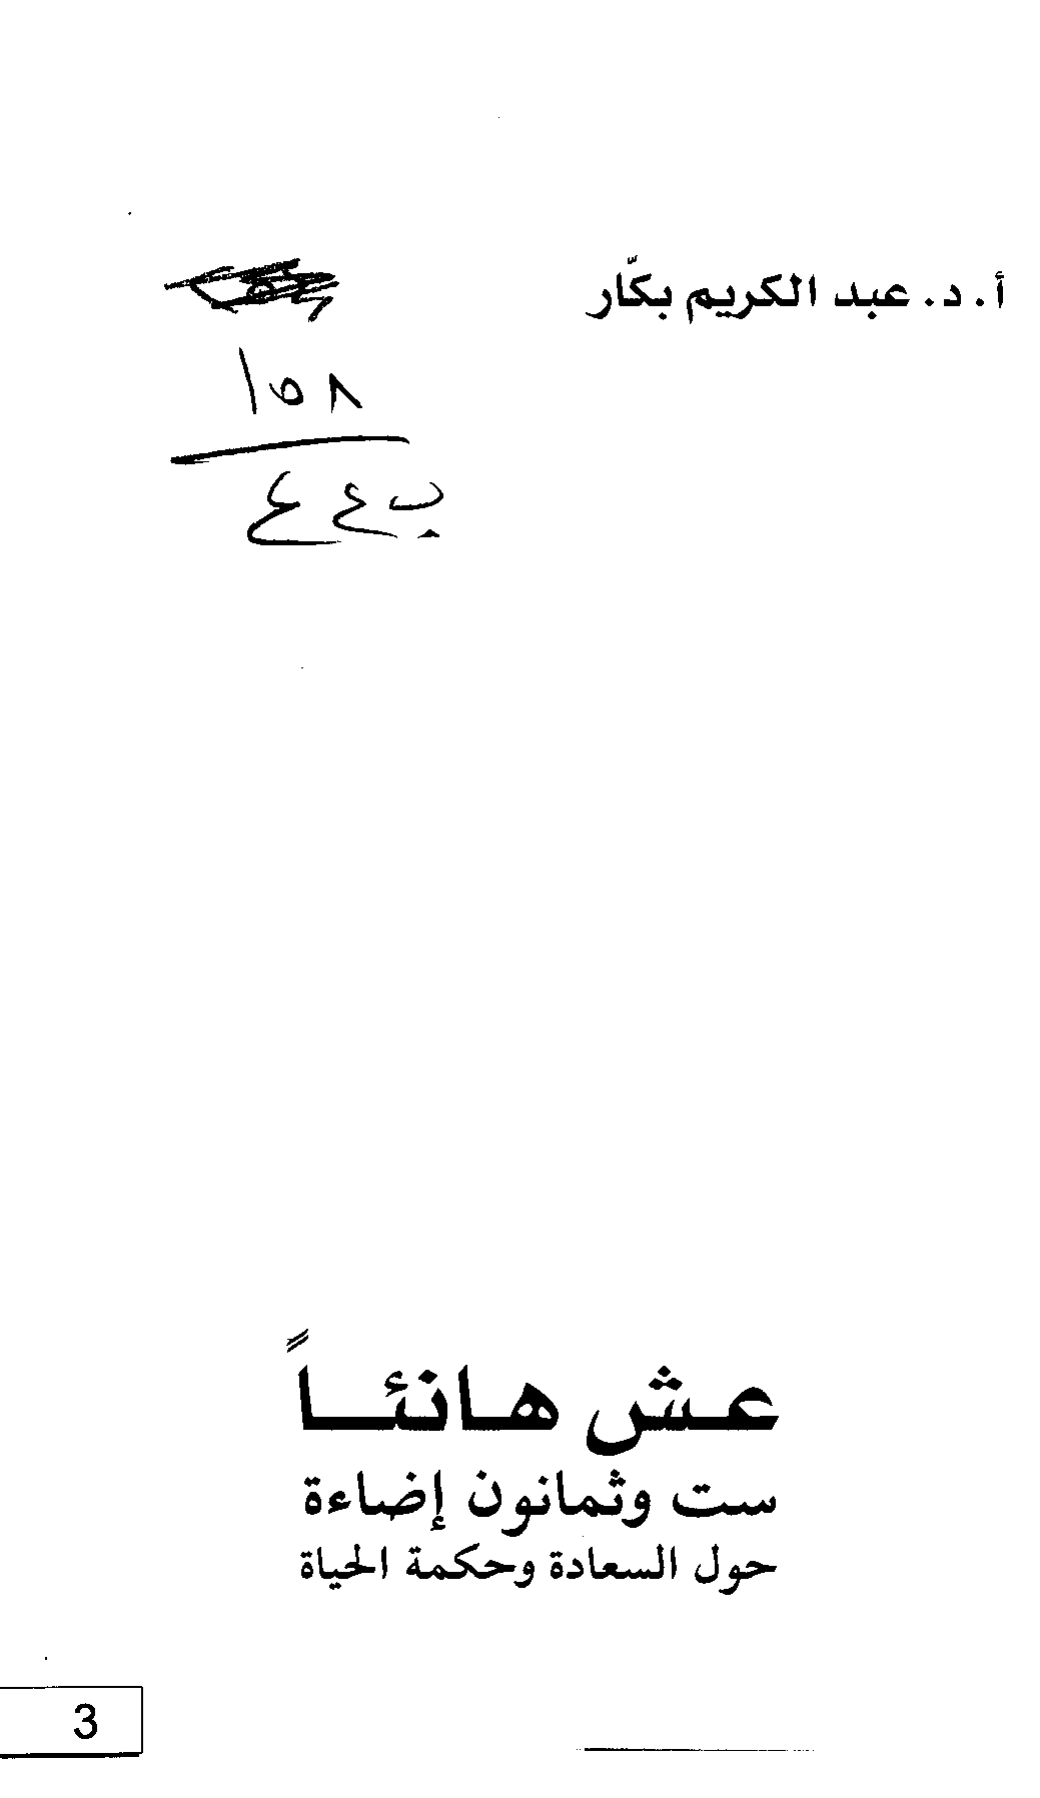 أ. د. عبد الكريم بكّار
١٥٨
ب ع ع
عش هانئاً
ست وثمانون إضاءة
حول السعادة وحكمة الحياة
3